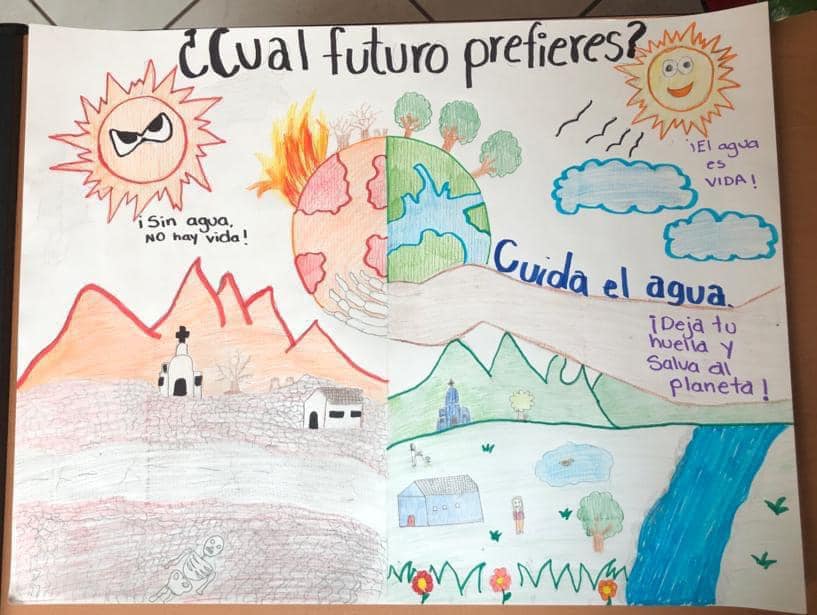 ¿Cual futuro prefieres?
¡Sin agua,
NO hay vida!
¡El agua
es
VIDA!
Cuida el agua.
¡Deja tu
huella y
Salva al
planeta!